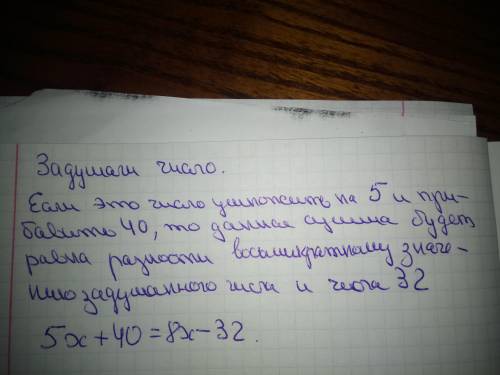 Задумали число.
Если это число умножить на 5 и при-
бавить 40, то данная сумма будет
равна разности восьмикратному значе-
нию задуманного числа и числа 32
5x + 40 = 8x - 32.